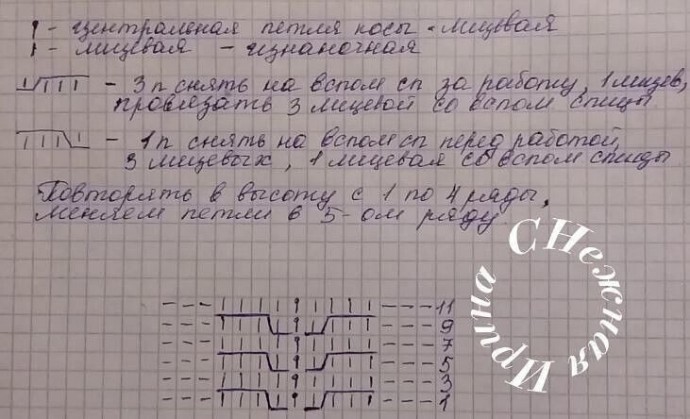 - центральная петля косы - лицевая
| - лицевая - изнаночная
- 3п снять на вспом сп за работу, 1 лицев,
провязать 3 лицевой со вспом спицы
- 1п снять на вспом сп перед работой,
3 лицевых, 1 лицевая со вспом спицы
Повторять в высоту с 1 по 4 ряды,
меняем петли в 5-ом ряду
11
9
7
5
3
1
Ирина СНежная